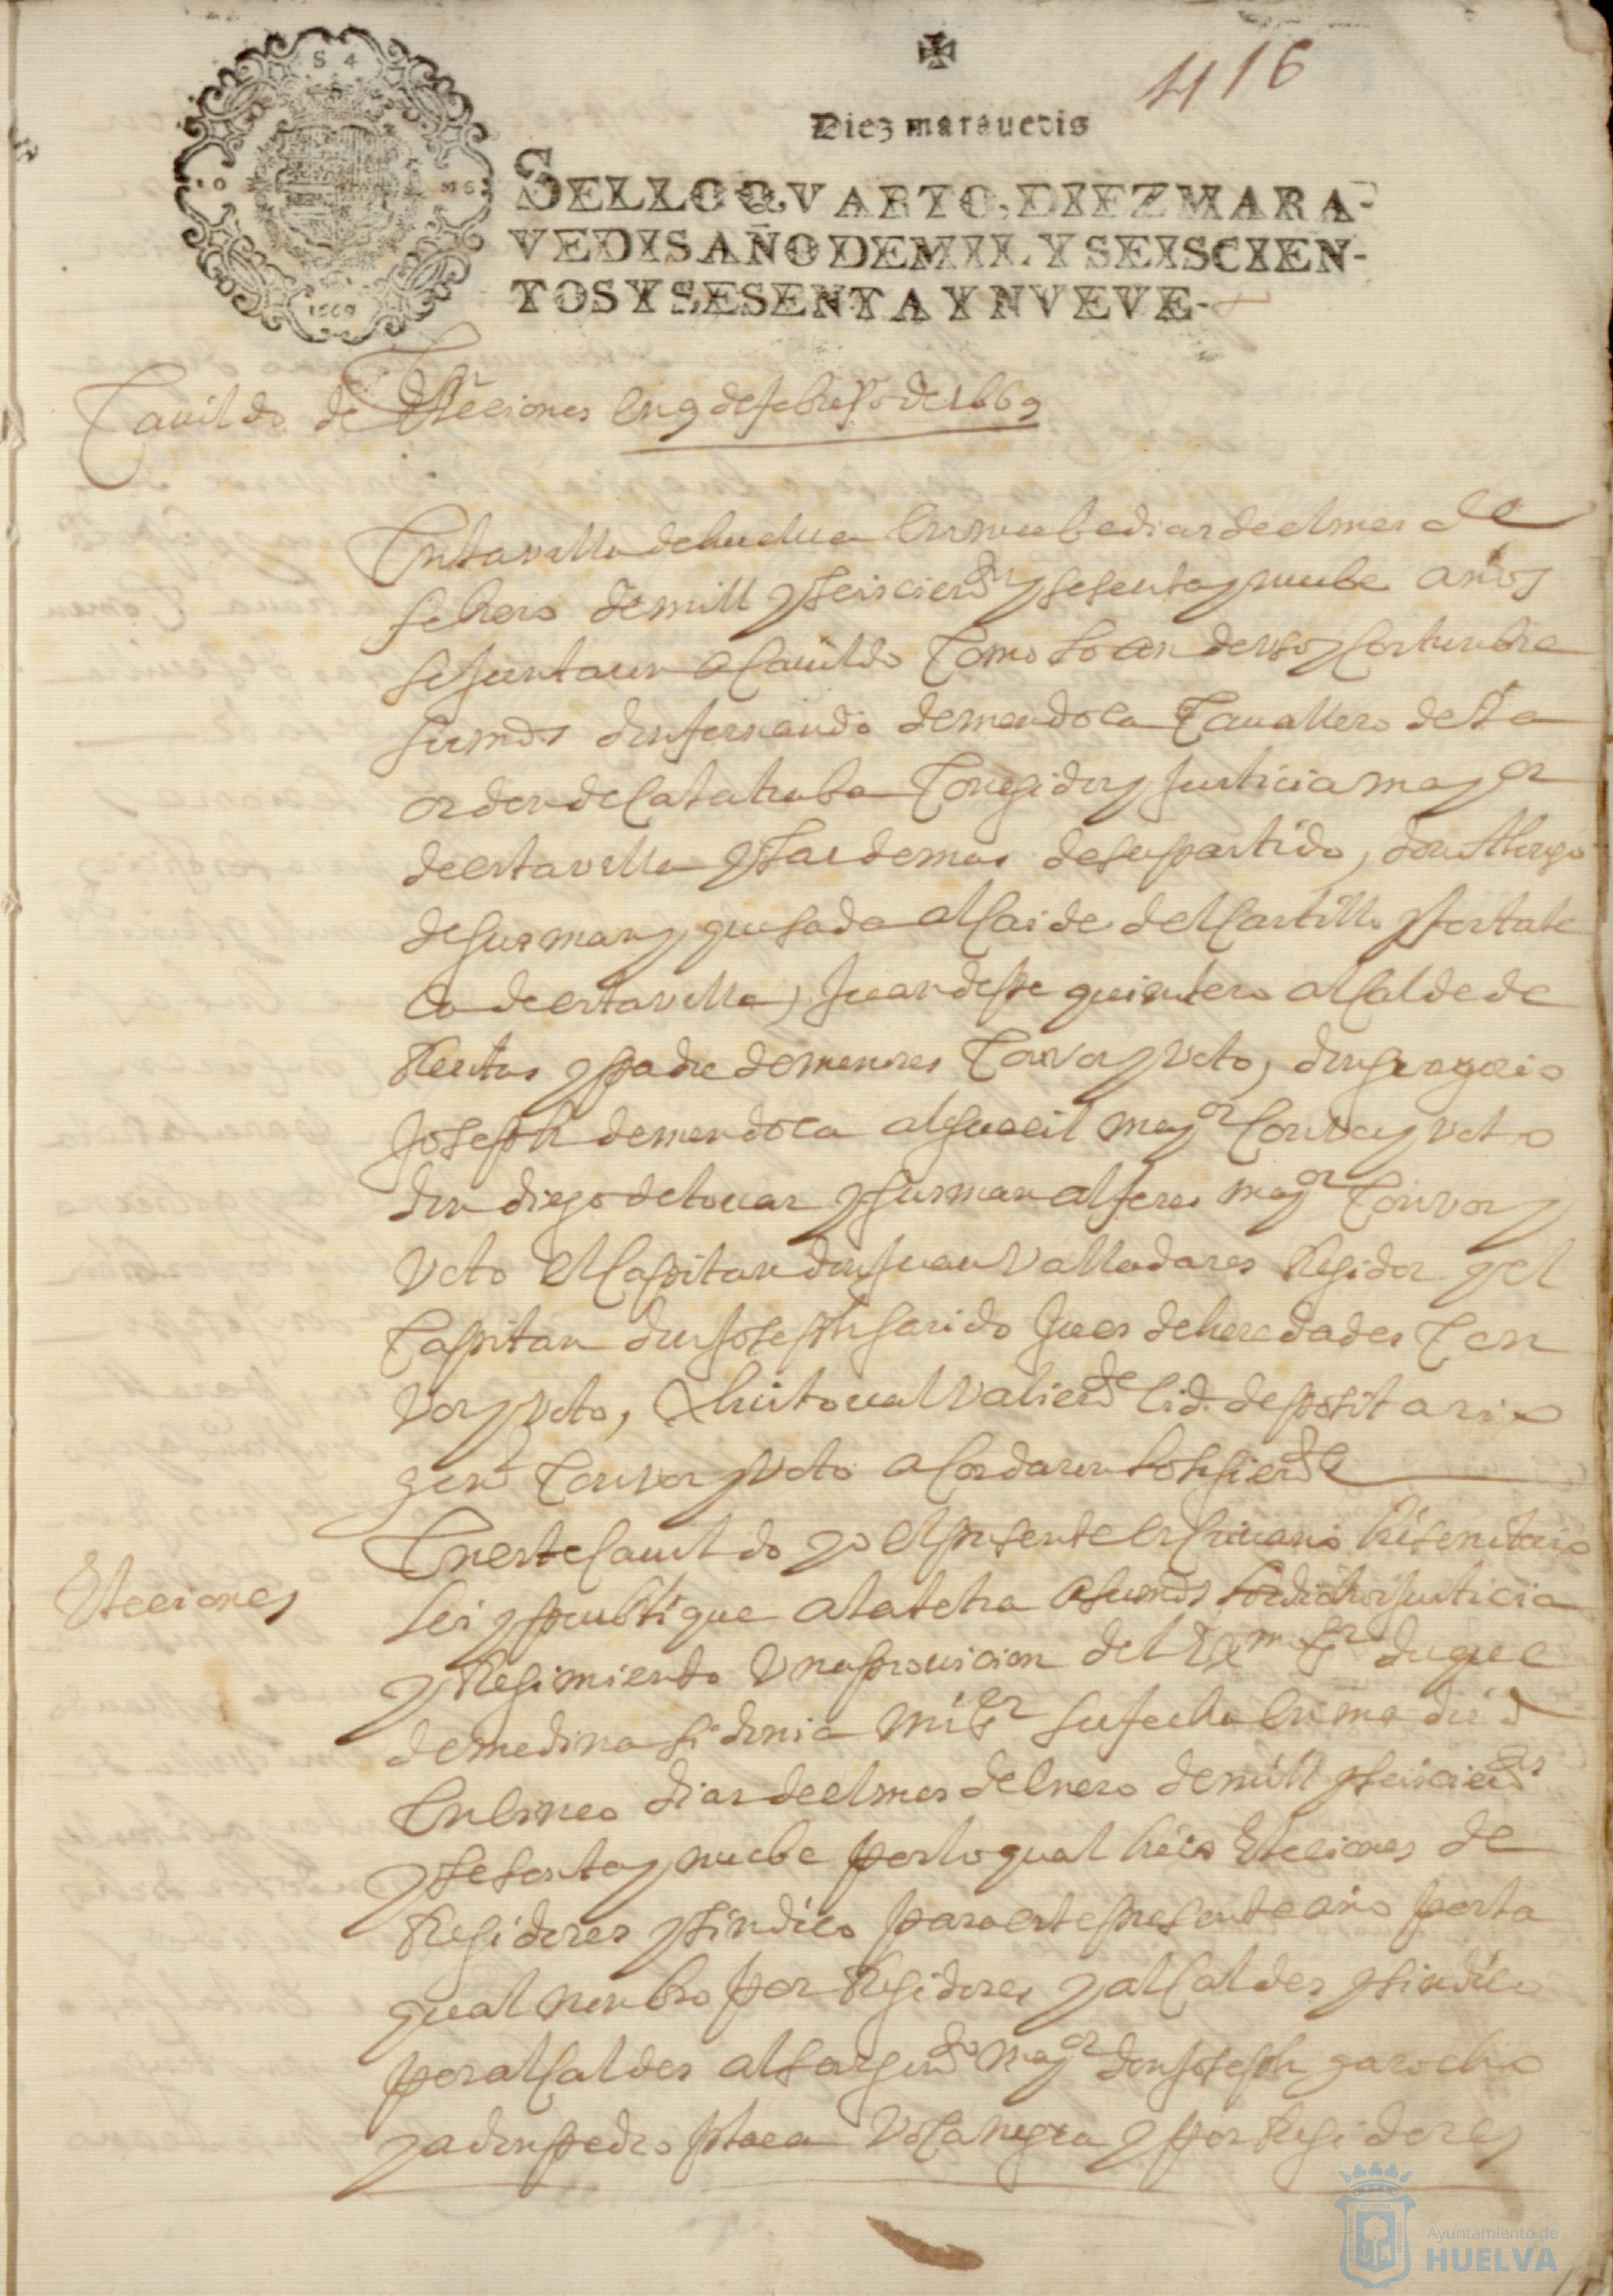 S 4
1669
416
Diez maravedis
SELLO QVARTO, DIEZ MARA-
VEDIS AÑO DE MIL Y SEISCIEN-
TOS Y SESENTA Y NVEVE-
Cauildo de Eleciones en 9 de febrero de 1669
En la villa de huelua en nuebe dias de el mes de
febrero de mill y seiscientos y sesenta y nuebe años
se juntaron a cauildo como lo an de uso y costunbre
sus mds don fernando de mendoca Cauallero de la
orden de Calatraba Corregidor y justicia mayor
de esta villa y las demas de su partido, don
de gusman y quesada alcaide del castillo y fortale
ca de esta villa, Juan de quintero alcalde de
Rentas y padre de menores con vos y voto, don gregorio
Joseph de mendoca alguacil mayor con vos y voto
don diego de touar y gusman alferes mayor con vos y
voto el Capitan don juan valladares Regidor y el
Capitan don joseph garrido jues de heredades con
vos y voto, Christoual Valiente depositario
genl con vos y voto acordaron lo siguiente
Elecciones
En este cauildo yo el presente escriuano
lei y publique a la letra a sus mds los dichos justicia
y Regimiento una prouicion del Exmo Sr duque
de medina sidonia mi Sr su fecha en madrid
en cinco dias de el mes de enero de mill y seiscientos
y sesenta y nuebe por lo qual hico Elecciones de
Regidores y sindico para este presente año por la
qual nonbro por Regidores y alcaldes y sindico
por alcaldes al sargento mayor don joseph garocho
y a don pedro placa Vocanegra y por Regidores
Ayuntamiento de
HUELVA